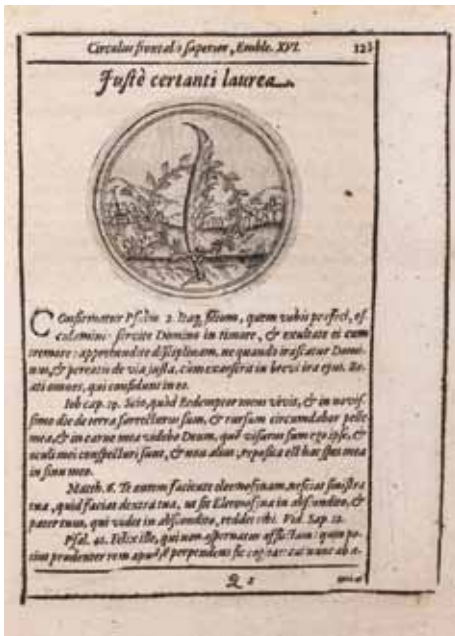 Circulus frontalis superior, Emble. XVI. 123
Justè certanti laurea
Confirmatur Psalm. 2. Itaq, filium, quem vobis prefeci, os-
culamini: servite Domino in timore, & exultate ei cum
tremore: apprehendite disciplinam, ne quando irascatur Domi-
nus, & pereatis de via justa. Cum exarserit in brevi ira ejus. Be-
ati omnes, qui confidunt in eo.
Iob cap. 19. Scio, quòd Redemptor meus vivit, & in novis-
simo die de terra surrecturus sum, & rursum circumdabor pelle
mea, & in carne mea videbo Deum, quē visurus sum ego ipse, &
oculi mei conspecturi sunt, & non alius, reposita est hæc spes mea
in sinu meo.
Matth. 6. Te autem faciente eleemosinam, nesciat sinistra
tua, quid faciat dextra tua, ut sit Eleemosina in abscondito, &
pater tuus, qui videt in abscondito, reddet tibi. Vid. Sap. 12.
Psal. 41. Felix ille, qui non aspernatur afflictum: quem po-
tius prudenter rem apud se perpendens sic cogitat: cui nunc ab
Q 2